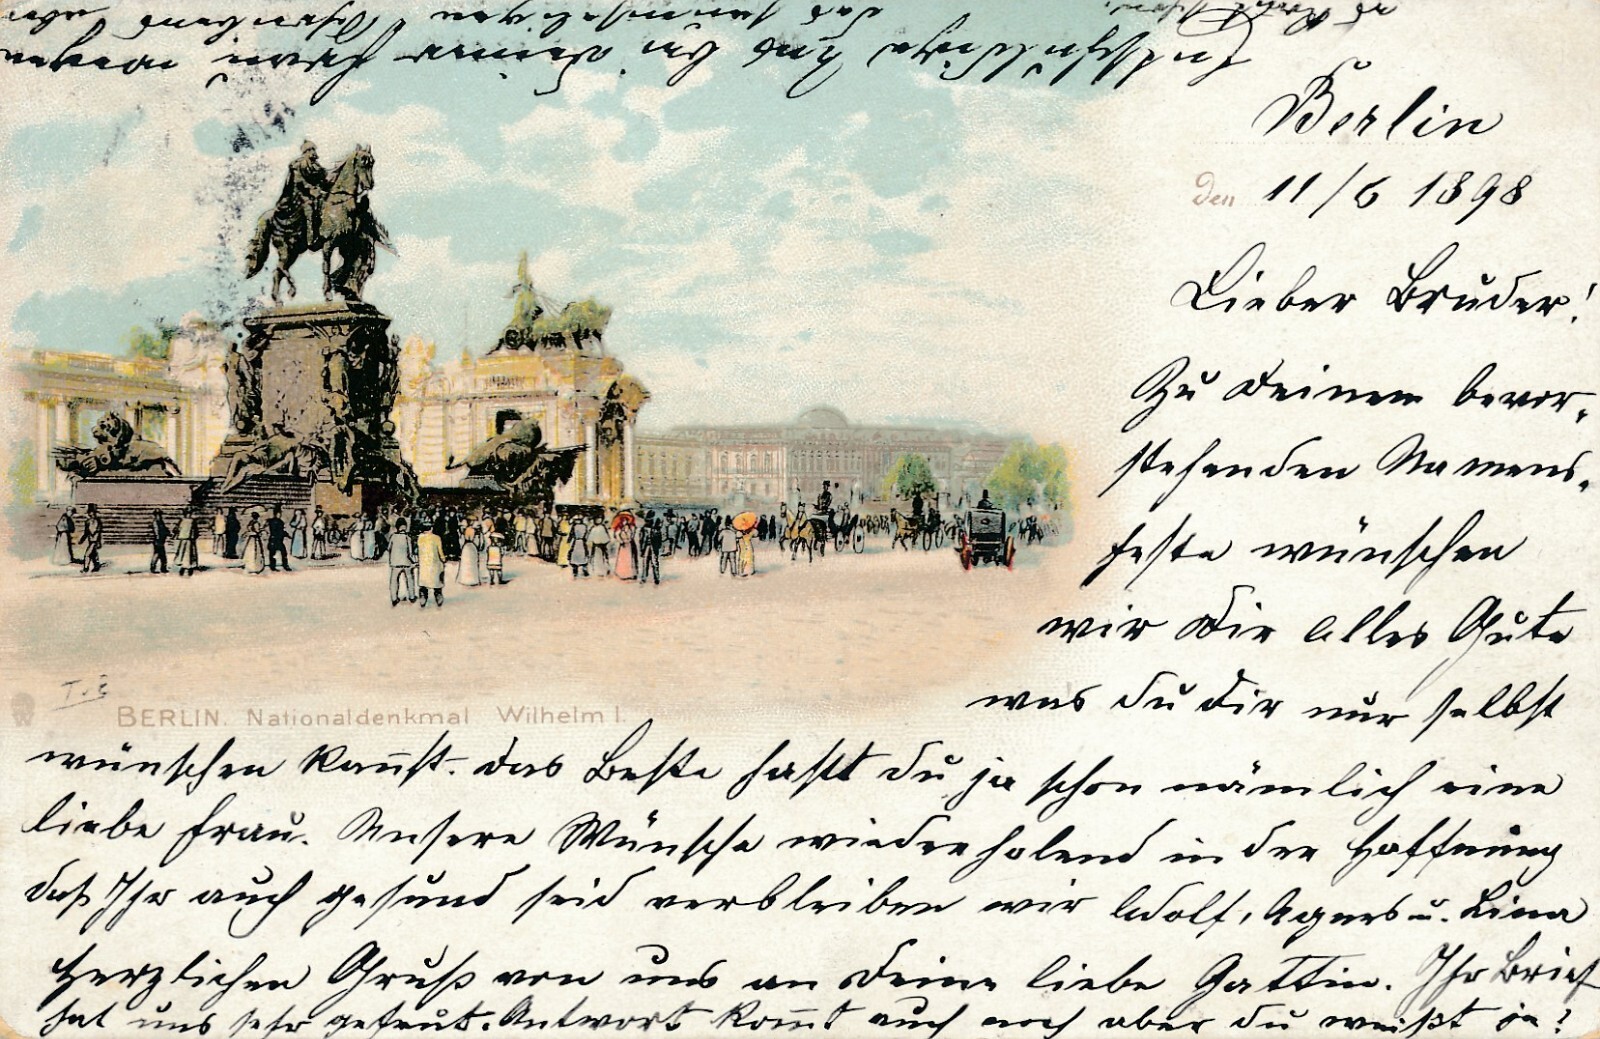 Berlin
den 11/6 1898
Lieber Bruder!
Zu Deinem bevor-
stehenden Namens-
feste wünschen
wir Dir alles Gute
was du dir nur selbst
wünschen kannst. das Beste hast du ja schon nämlich eine
liebe Frau. Unsere Wünsche wiederholend in der Hoffnung
daß Ihr auch gesund seid verbleiben wir Adolf, Agnes u. Lina
Herzlichen Gruß von uns an Deine liebe Gattin. Ihr Brief
hat uns sehr gefreut. Antwort kommt auch noch aber du weißt ja?
Entschuldige uns bei Deiner Frau wegen
T. v. E
BERLIN. Nationaldenkmal Wilhelm I.